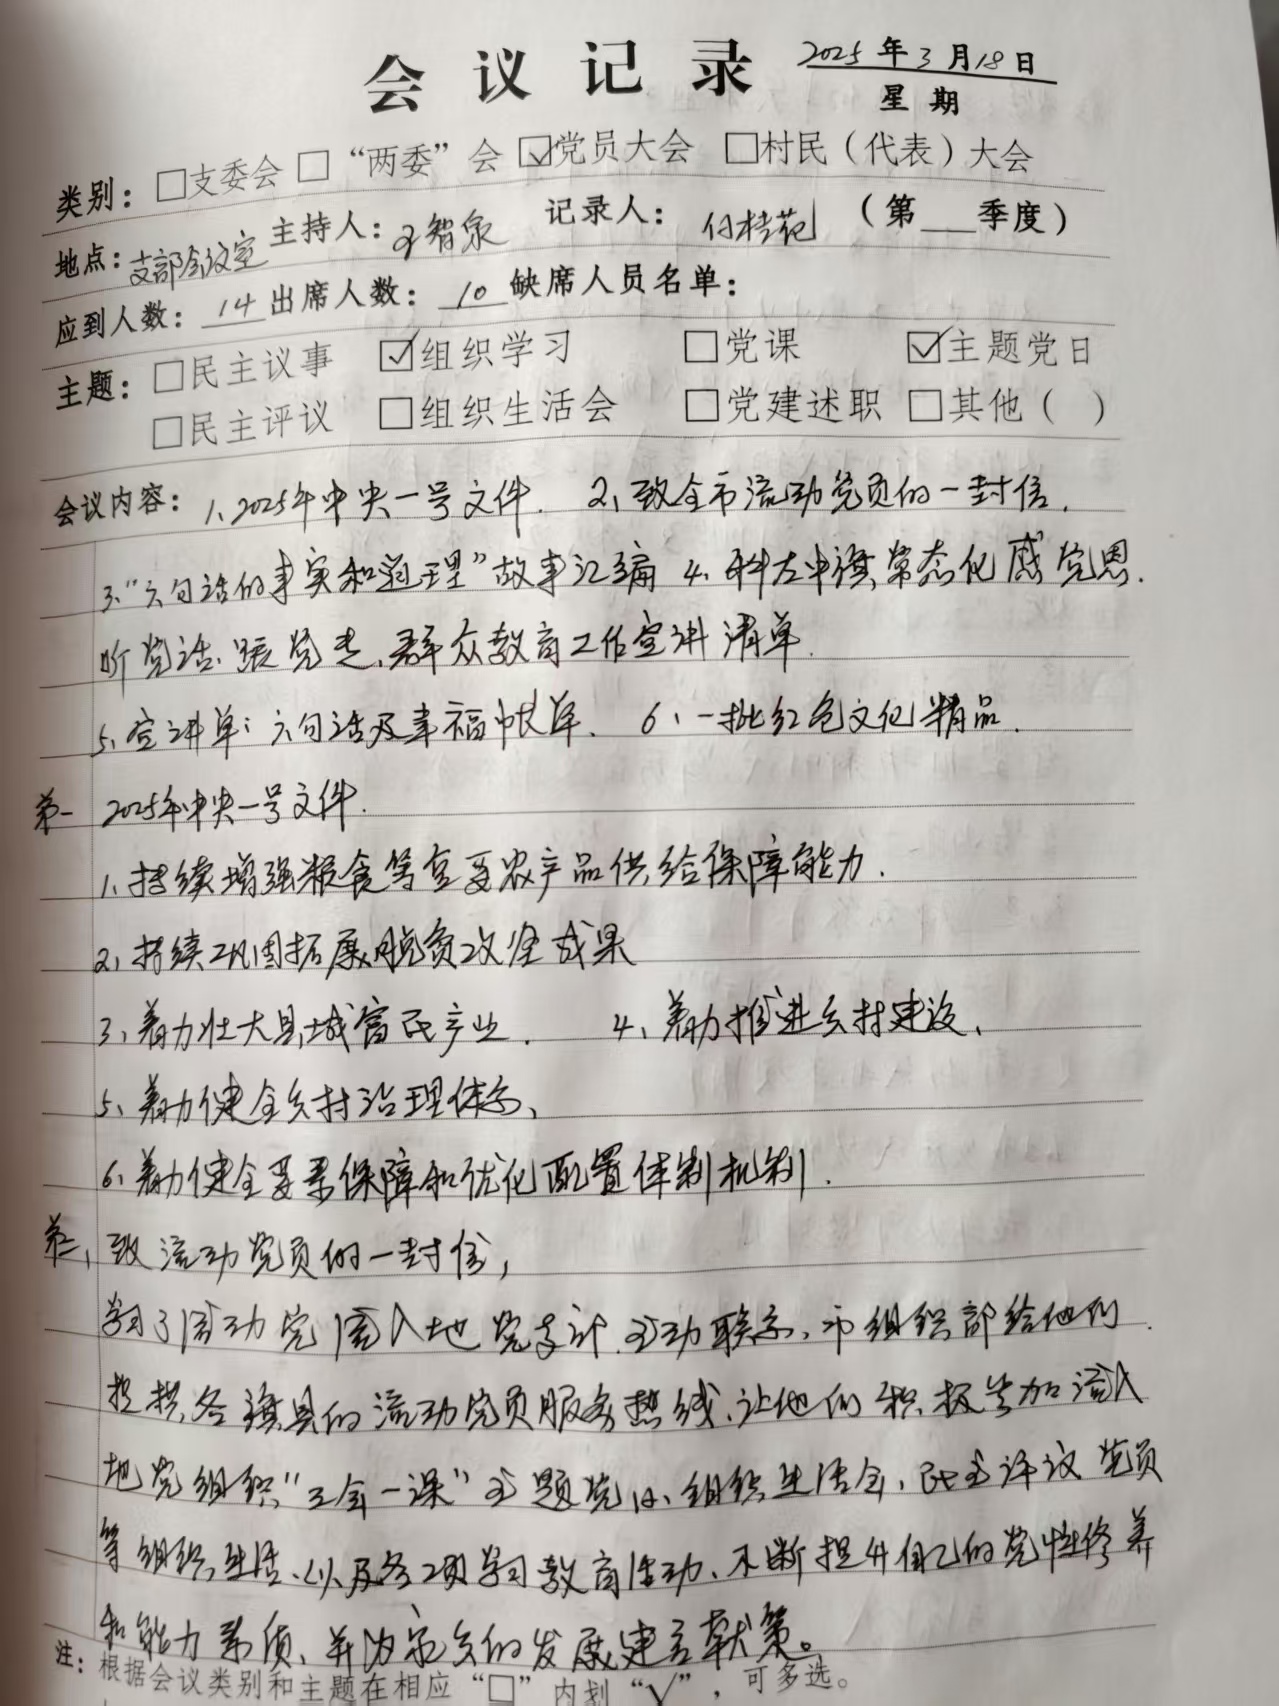 会议记录 2025年3月18日
星期
类别：□支委会 □“两委”会 ☑党员大会 □村民（代表）大会
地点：支部会议室 主持人：王智泉 记录人：付桂花 （第___季度）
应到人数：14 出席人数：10 缺席人员名单：
主题：□民主议事 ☑组织学习 □党课 ☑主题党日
□民主评议 □组织生活会 □党建述职 □其他（ ）
会议内容：1、2025年中央一号文件. 2、致全市流动党员的一封信.
3、“六句话的事实和道理”故事汇编 4、科左中旗常态化感党恩.
听党话、跟党走、群众教育工作宣讲清单.
5、宣讲单：六句话及幸福帐单、 6、一批红色文化精品.
第一 2025年中央一号文件.
1、持续增强粮食等重要农产品供给保障能力.
2、持续巩固拓展脱贫攻坚成果
3、着力壮大县域富民产业. 4、着力推进乡村建设、
5、着力健全乡村治理体系、
6、着力健全要素保障和优化配置体制机制.
第二、致流动党员的一封信，
学习了流动党 流入地党支 主动联系、市组织部给他们
提供各旗县的流动党员服务热线、让他们积极参加流入
地党组织“三会一课”主题党日、组织生活会、民主评议党员
等组织生活、以及各项学习教育活动、不断提升自己的党性修养
和能力素质、并为家乡的发展建言献策。
注：根据会议类别和主题在相应“□”内划“√”，可多选。